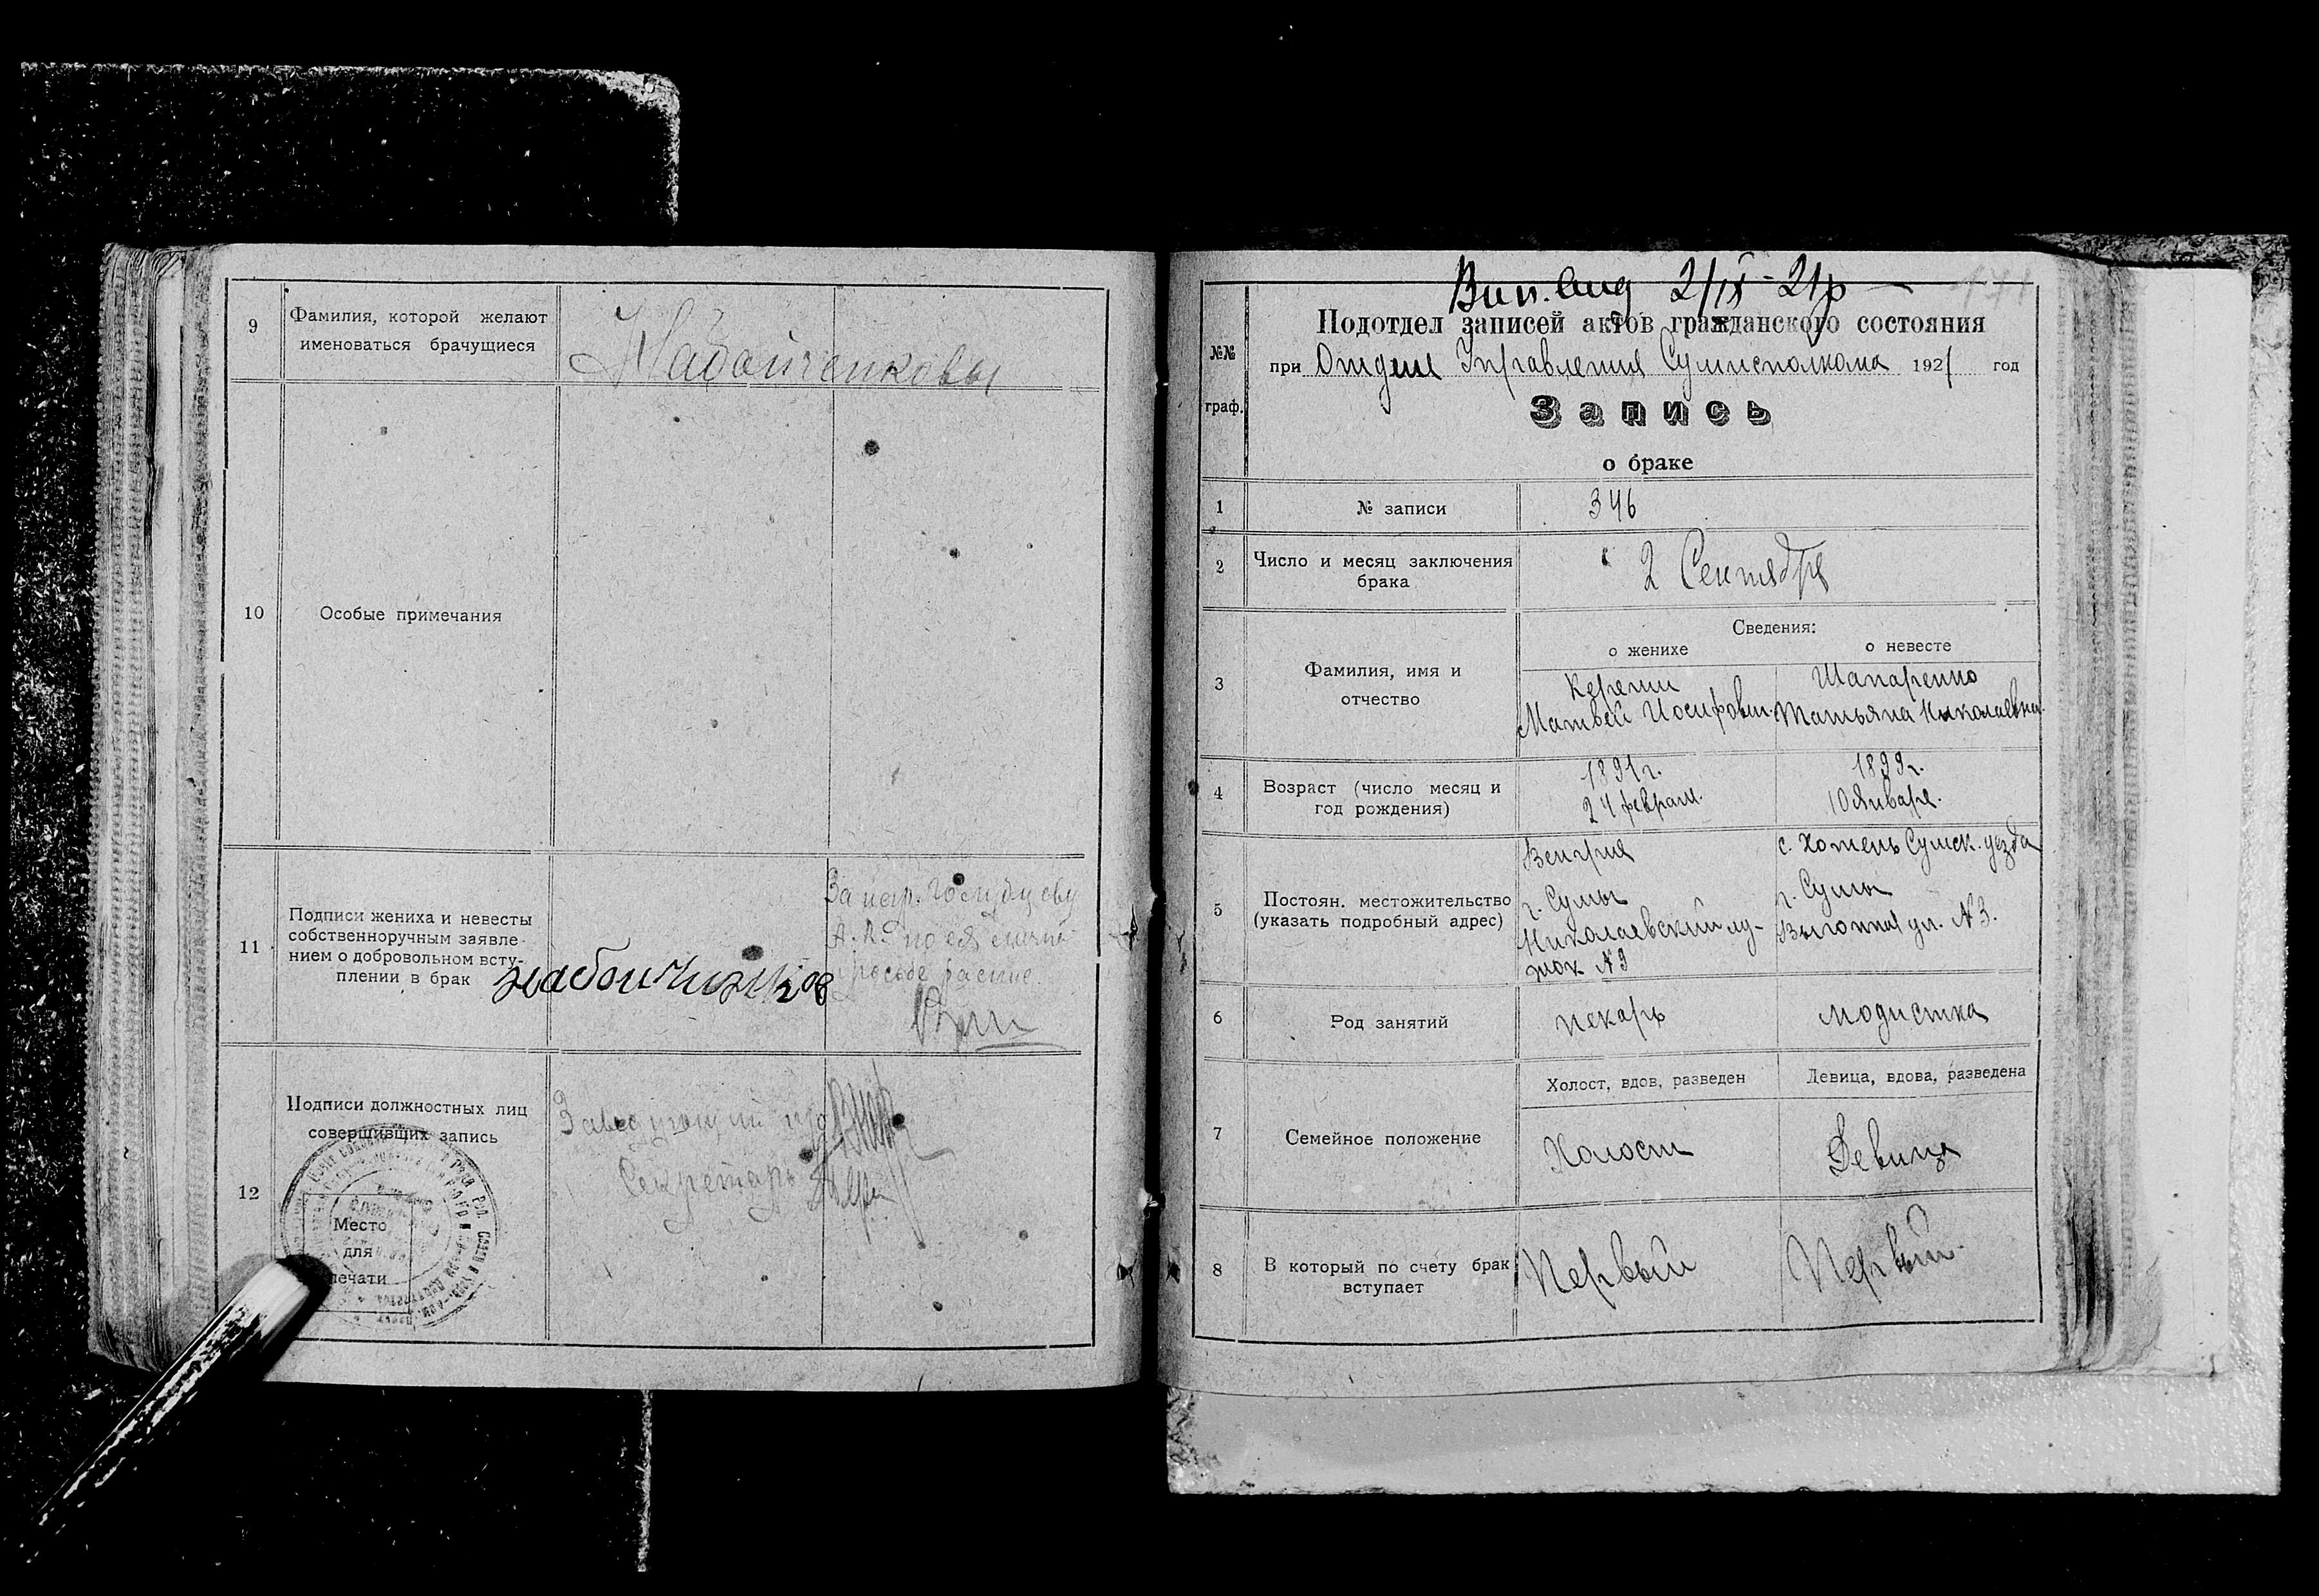 9
Фамилия, которой желают
именоваться брачущиеся
Жабойченковы
10
Особые примечания
11
Подписи жениха и невесты
собственноручным заявле-
нием о добровольном всту-
плении в брак
За негр. Голубцеву
12
Подписи должностных лиц
совершивших запись
Место
для
печати
Заведующий
Секретарь
2/IX - 21р
Подотдел записей актов гражданского состояния
№№
граф.
при Отделе Управления Сумисполкома 1921 год
Запись
о браке
1
№ записи
346
2
Число и месяц заключения
брака
2 Сентября
3
Фамилия, имя и
отчество
Сведения:
о женихе
о невесте
Керени
Матвей Иосифович
Шапаренко
Татьяна Николаевна
4
Возраст (число месяц и
год рождения)
1891 г.
24 феврал.
1899 г.
10 Января.
5
Постоян. местожительство
(указать подробный адрес)
Венгрия
г. Сумы
Николаевский лу-
жок №9
с. Хотень Сумск. уезда
г. Сумы
Выгонная ул. №3.
6
Род занятий
пекарь
модистка
7
Семейное положение
Холост, вдов, разведен
Девица, вдова, разведена
Холост
Девица
8
В который по счету брак
вступает
Первый
Первый